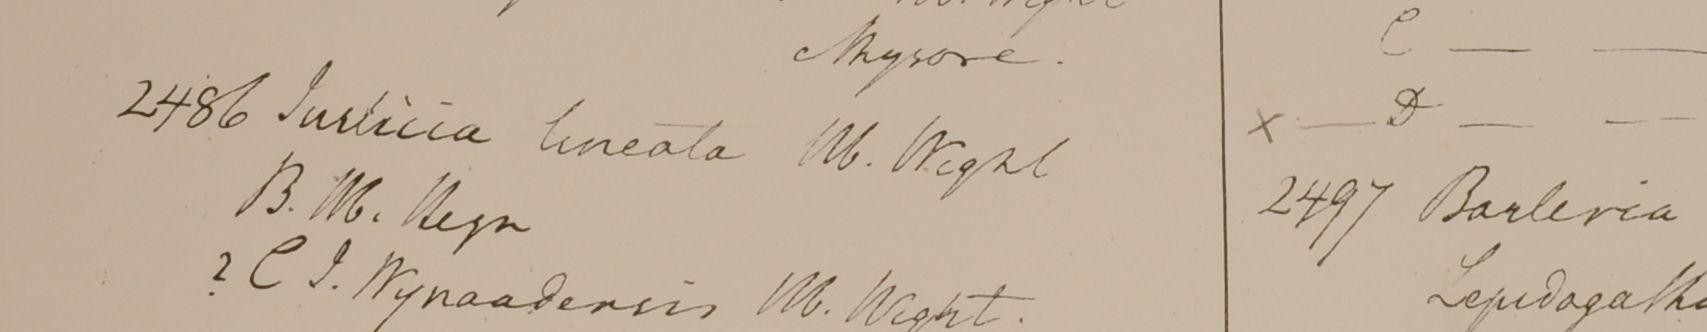 Mysore.
2486 Justicia lineata M. Wight
B. M. Heyn
? C J. Wynaadensis M. Wight.
C — —
x — D — —
2497 Barleria
Lepidagatha